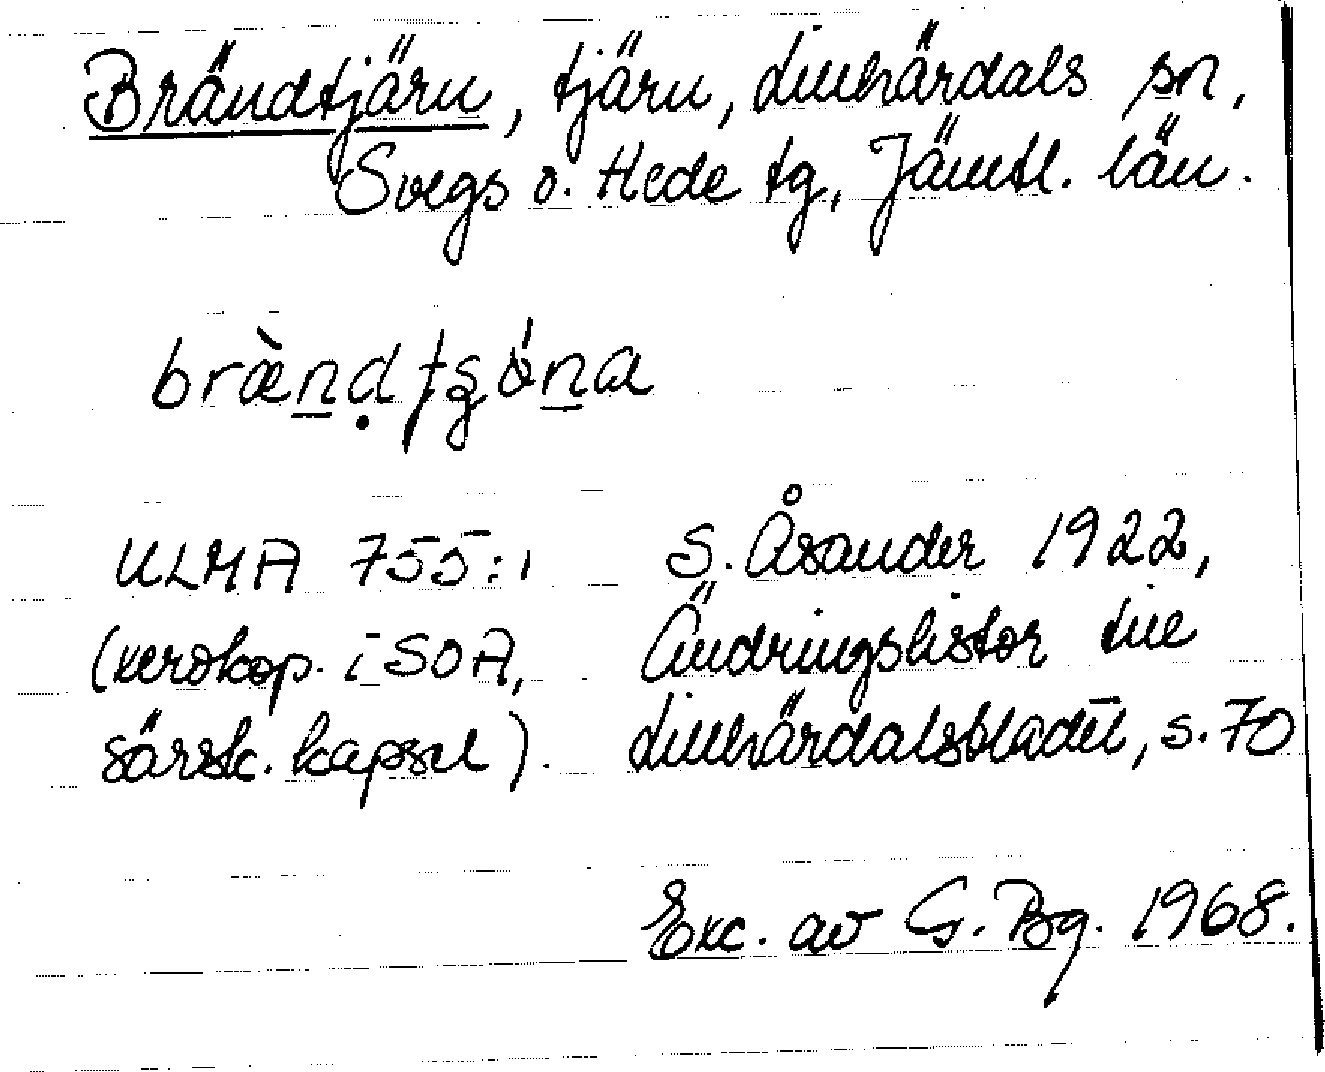 Brändtjärn, tjärn, Lillhärdals sn,
Svegs o. Hede tg, Jämtl. län.
ULMA 755:1 S. Åsander 1922,
(xerokop. i SOA, Ändringslistor till
särsk. kapsel). Lillhärdalsbladet, s. 70
Exc. av G. Bg. 1968.